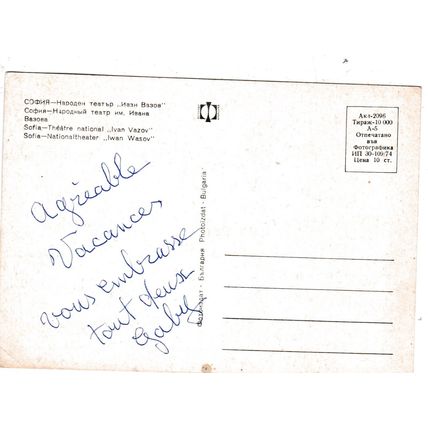 СОФИЯ—Народен театър „Иван Вазов"
София—Народный театр им. Ивана
Вазова
Sofia—Théâtre national „Ivan Vazov"
Sofia—Nationaltheater „Iwan Wasow"
Акл-2096
Тираж-10 000
А-5
Отпечатано
във
Фотографика
ИП 30-109/74
Цена 10 ст.
Фотоиздат - България Photoizdat - Bulgaria
agréable
Vacances
vous embrasse
tout deux
Gaby